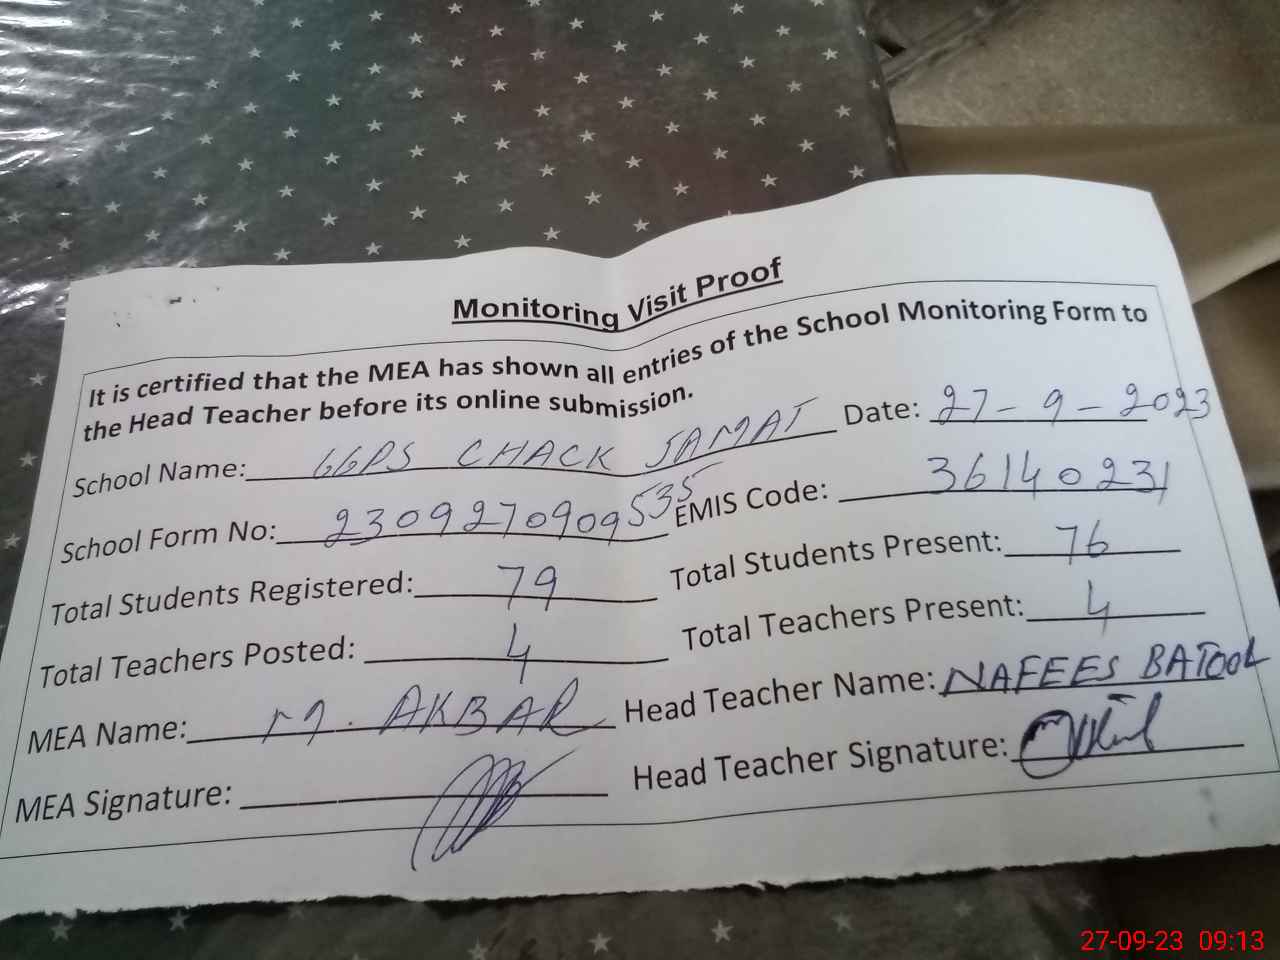 Monitoring Visit Proof
It is certified that the MEA has shown all entries of the School Monitoring Form to
the Head Teacher before its online submission.
School Name: GGPS CHACK JAMAT Date: 27-9-2023
School Form No: 2309270909535 EMIS Code: 36140231
Total Students Registered: 79 Total Students Present: 76
Total Teachers Posted: 4 Total Teachers Present: 4
MEA Name: M. AKBAR Head Teacher Name: NAFEES BATOOL
MEA Signature: Head Teacher Signature:
27-09-23 09:13